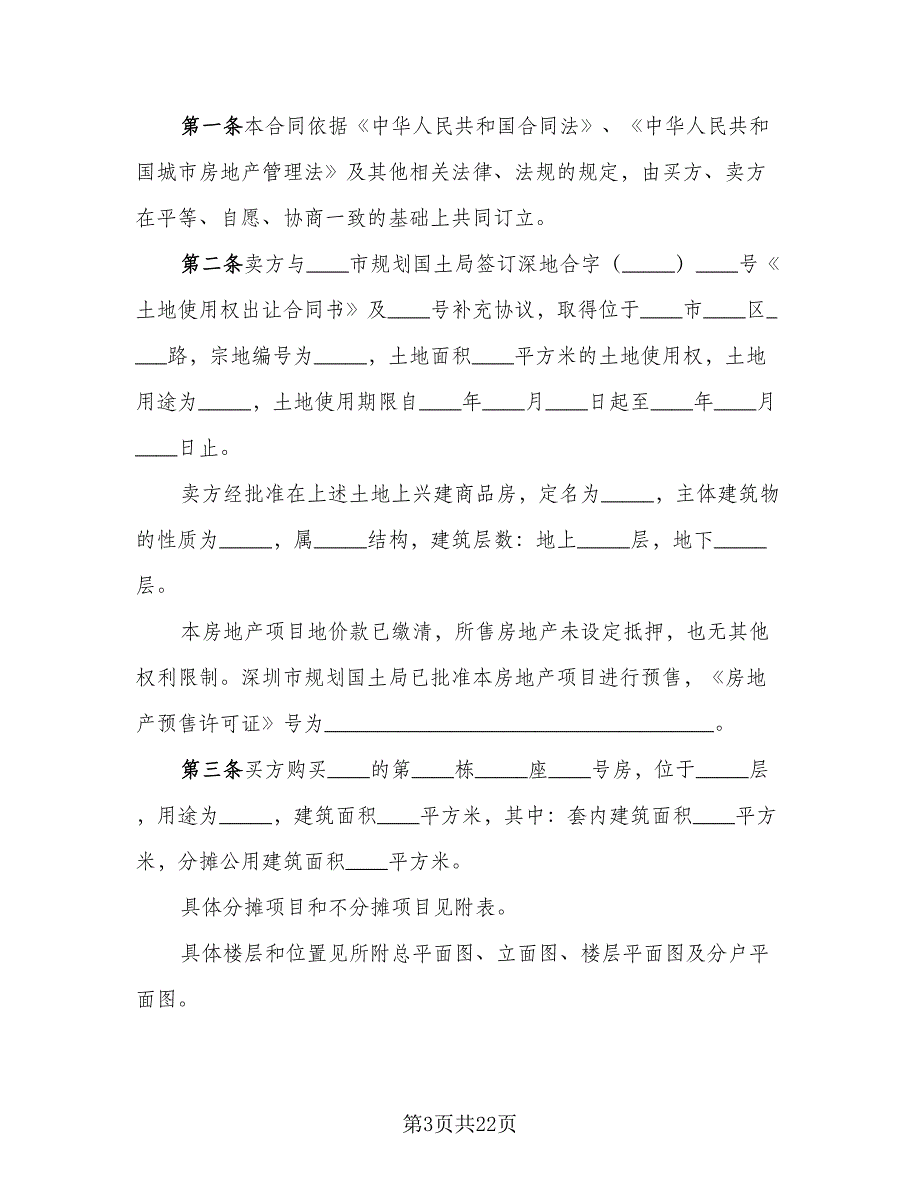 第一条本合同依据《中华人民共和国合同法》、《中华人民共和
国城市房地产管理法》及其他相关法律、法规的规定，由买方、卖方
在平等、自愿、协商一致的基础上共同订立。
第二条卖方与____市规划国土局签订深地合字（_____）____号《
土地使用权出让合同书》及____号补充协议，取得位于____市____区_
___路，宗地编号为_____，土地面积____平方米的土地使用权，土地
用途为_____，土地使用期限自____年____月____日起至____年____月
____日止。
卖方经批准在上述土地上兴建商品房，定名为_____，主体建筑物
的性质为_____，属_____结构，建筑层数：地上_____层，地下_____
层。
本房地产项目地价款已缴清，所售房地产未设定抵押，也无其他
权利限制。深圳市规划国土局已批准本房地产项目进行预售，《房地
产预售许可证》号为_____________________________________。
第三条买方购买____的第____栋_____座____号房，位于_____层
，用途为_____，建筑面积____平方米，其中：套内建筑面积____平方
米，分摊公用建筑面积____平方米。
具体分摊项目和不分摊项目见附表。
具体楼层和位置见所附总平面图、立面图、楼层平面图及分户平
面图。
第3页共22页